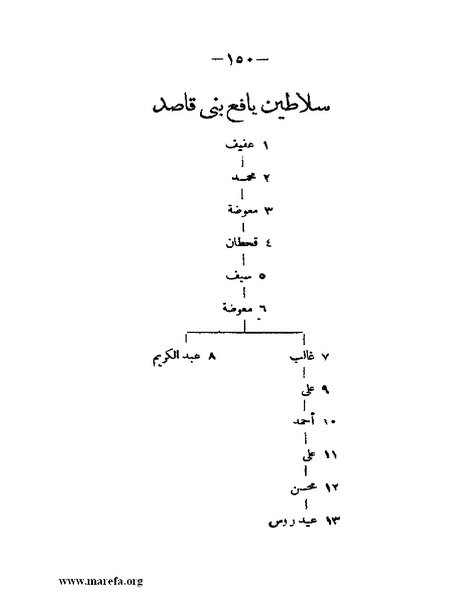 —١٥٠—
سلاطين يافع بنى قاصد
١ عفيف
٢ محمد
٣ معوضة
٤ قحطان
٥ سيف
٦ معوضة
٧ غالب ٨ عبد الكريم
٩ على
١٠ أحمد
١١ على
١٢ محسن
١٣ عيدروس
www.marefa.org